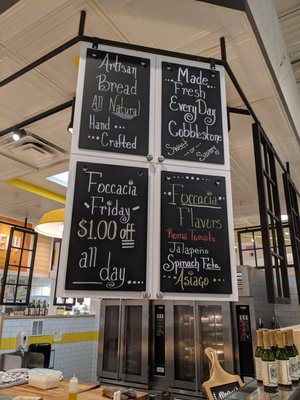 Artisan
Bread
All Natural
Hand
Crafted
Made
Fresh
Every Day
Cobblestone
Sweet or Savory
Foccacia
Friday
$1.00 off
all day
Foccacia
Flavors
Roma Tomato
Jalapeño
Spinach Feta
Asiago